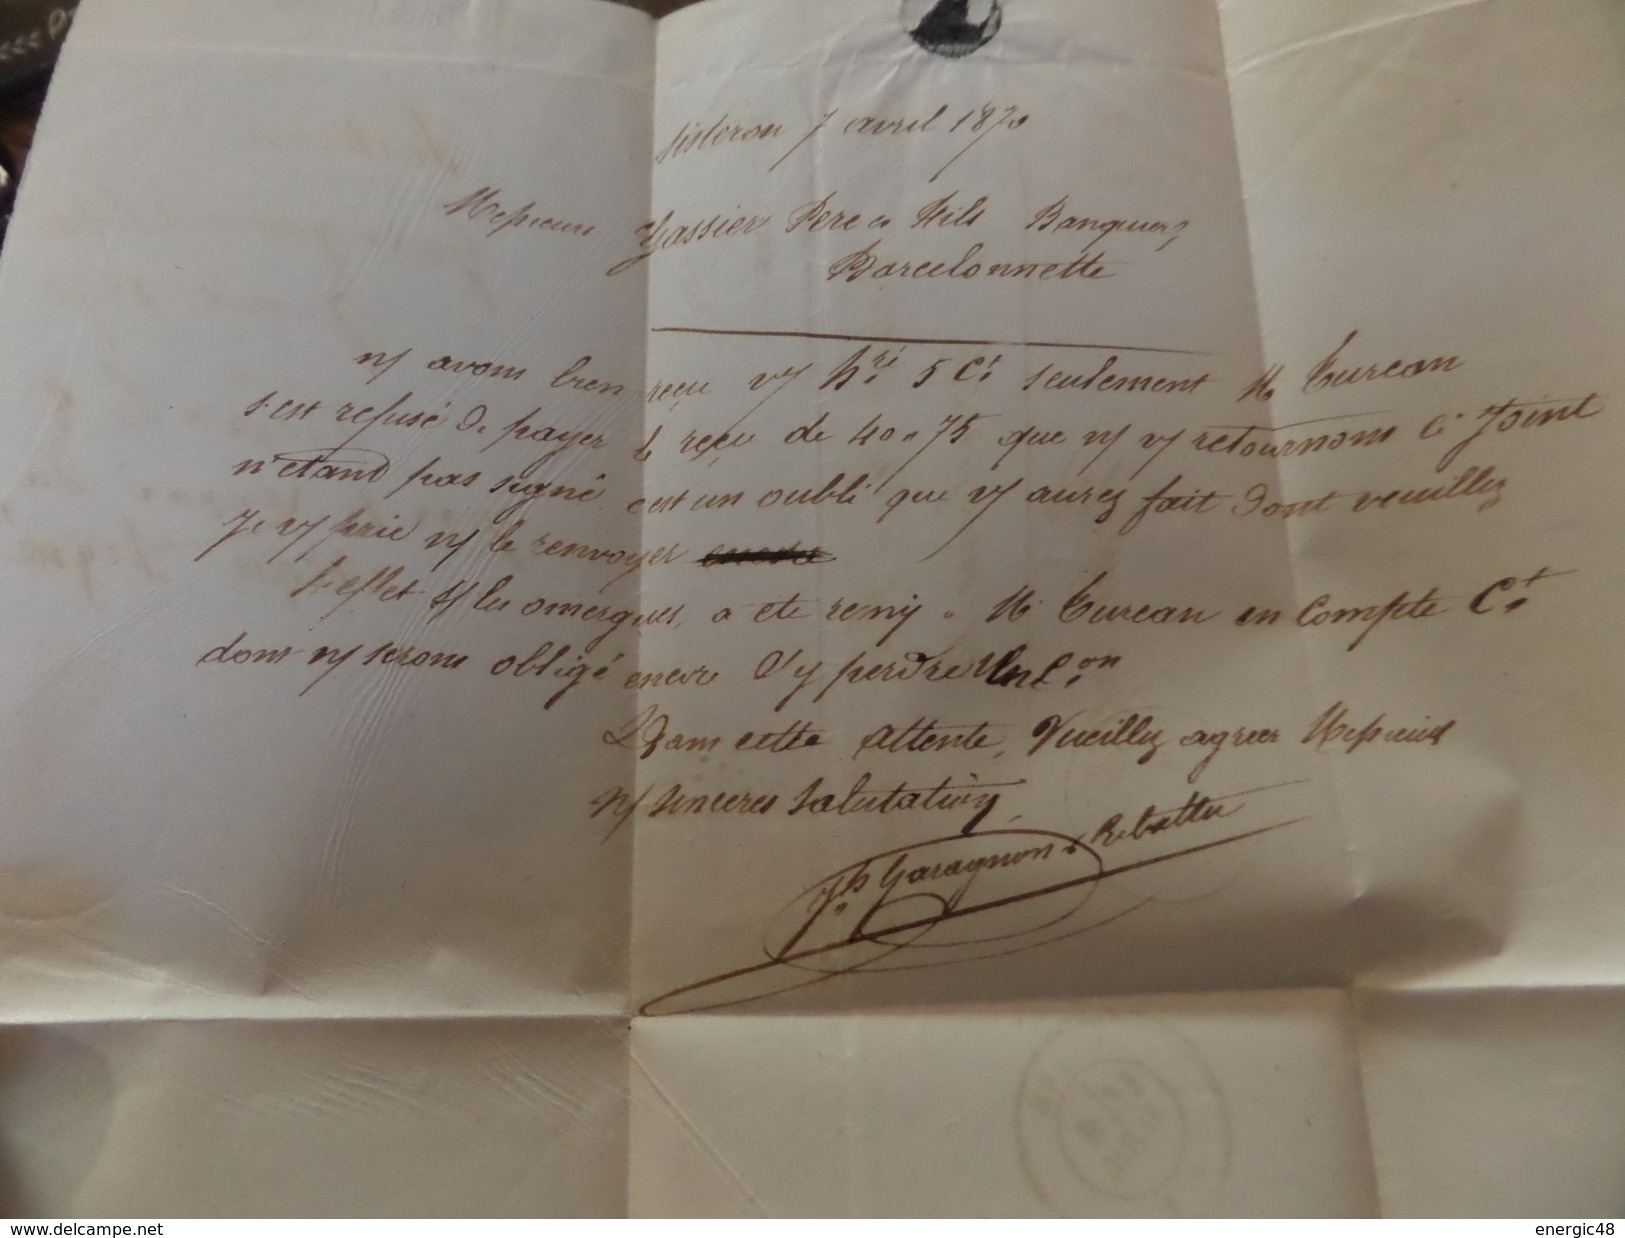 Sisteron 7 avril 1870
Messieurs Gassier Pere & Fils Banquiers
Barcelonnette
n/ avons bien reçu v/ h.ré 5 Ct seulement M. Tureau
s'est refusé de payer le reçu de 40.75 que n/ v/ retournons Ci Joint
n'etand pas signé c'est un oubli que v/ aurez fait dont veuillez
Je v/ prie n/ le renvoyer
L'effet s/ les omergues, a eté remis a M. Tureau en Compte Ct
dont n/ serons obligé encore d'y perdre Un C.on
Dans cette attente, Veuillez agreer Messieurs
N/ sinceres salutations
Jh. Garagnon & Rebattu
www.delcampe.net
energic48